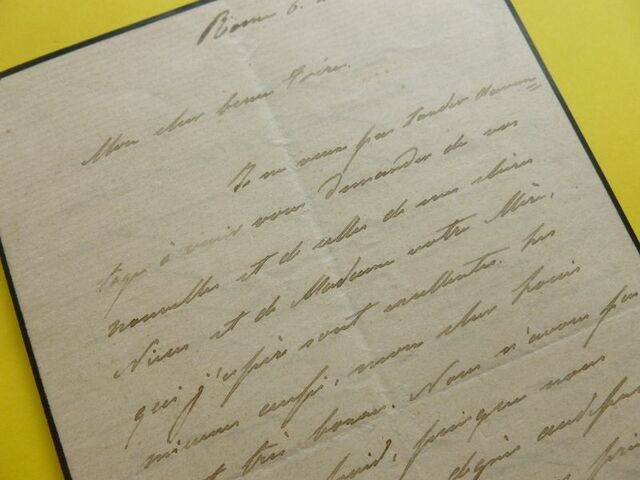 Rome 6.
Mon cher beau Frère.
Je ne veux pas tarder davan=
tage à venir vous demander de vos
nouvelles et de celles de mes chères
Nièces et de Madame votre Mère,
qui j'espère sont excellentes. Les
miennes aussi, mon cher Louis
très bonnes. Nous n'avons pas
froid, puisque nous